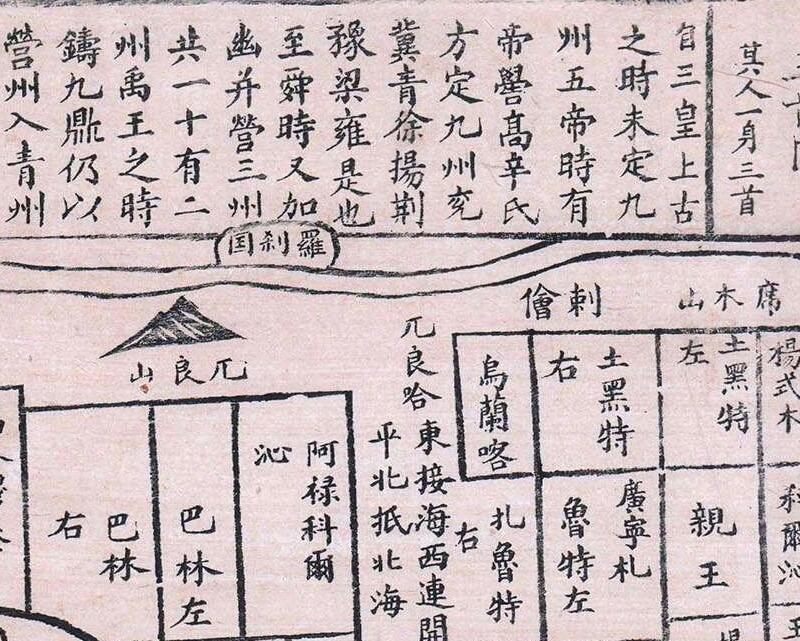 其人一身三首
自三皇上古
之時未定九
州五帝時有
帝嚳髙辛氏
方定九州兖
冀青徐揚荆
豫梁雍是也
至舜時又加
幽并營三州
共一十有二
州禹王之時
鑄九鼎仍以
營州入青州
羅刹国
席木山
剌儈
楊式木
土黑特
左
土黑特
右
烏蘭喀
兀良哈
東接海西連開
平北抵北海
兀良山
科爾沁
親王
廣寧札
魯特左
扎魯特
右
阿禄科爾
沁
巴林左
巴林
右